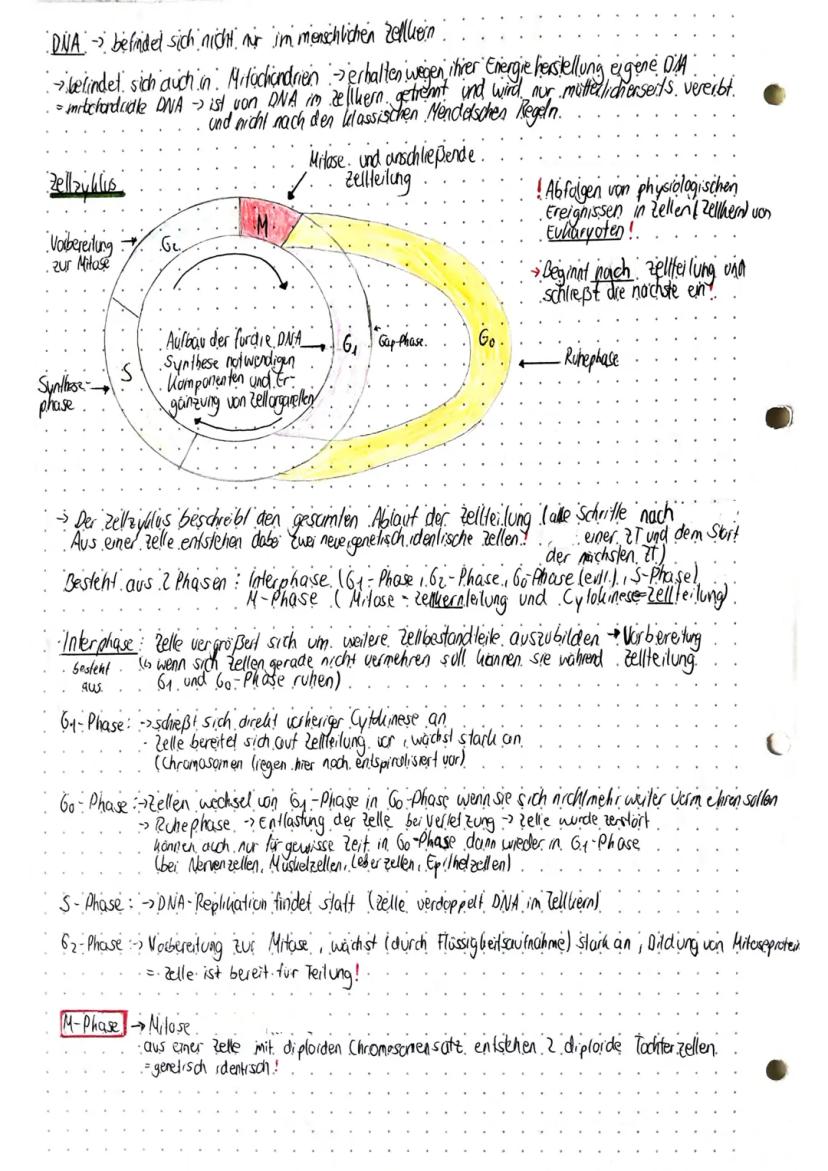 DNA → befindet sich nicht nur im menschlichen Zellkern
→ befindet sich auch in Mitochondrien → erhalten wegen ihrer Energieherstellung eigene DNA
= mitochondriale DNA → ist von DNA im Zellkern getrennt und wird nur mütterlicherseits vererbt
und nicht nach den klassischen Mendelschen Regeln.
Mitose und anschließende
Zellteilung
Zellzyklus
! Abfolgen von physiologischen
Ereignissen in Zellen (Zellkern) von
Eukaryoten!
→ Beginnt nach Zellteilung und
schließt die nächste ein!
M
G2
Vorbereitung →
zur Mitose
Aufbau der für die DNA
Synthese notwendigen
Komponenten und Er-
gänzung von Zellorganellen
G1
← Gap-Phase
G0
← Ruhephase
S
Synthese-
phase →
→ Der Zellzyklus beschreibt den gesamten Ablauf der Zellteilung (alle Schritte nach
einer ZT und dem Start
der nächsten ZT)
Aus einer Zelle entstehen dabei zwei neue genetisch identische Zellen!
Besteht aus 2 Phasen: Interphase (G1-Phase, G2-Phase, G0-Phase (evtl.), S-Phase)
M-Phase (Mitose = Zellkernteilung und Cytokinese = Zellteilung)
Interphase: Zelle vergrößert sich um weitere Zellbestandteile auszubilden → Vorbereitung
Zellteilung
besteht
aus
↳ wenn sich Zellen gerade nicht vermehren soll können sie während
G1 und G0-Phase ruhen)
G1-Phase: → schießt sich direkt vorheriger Cytokinese an
- Zelle bereitet sich auf Zellteilung vor, wächst stark an
(Chromosomen liegen hier noch entspiralisiert vor)
G0-Phase: → Zellen wechsel von G1-Phase in G0-Phase wenn sie sich nicht mehr weiter vermehren sollen
→ Ruhephase → Entlastung der Zelle bei Verletzung → Zelle wurde zerstört
können auch nur für gewisse Zeit in G0-Phase dann wieder in G1-Phase
(bei Nervenzellen, Muskelzellen, Leberzellen, Epithelzellen)
S-Phase: → DNA-Replikation findet statt (Zelle verdoppelt DNA im Zellkern)
G2-Phase: → Vorbereitung zur Mitose, wächst (durch Flüssigkeitsaufnahme) stark an, Bildung von Mitoseprotein
= Zelle ist bereit für Teilung!
M-Phase → Mitose
aus einer Zelle mit diploiden Chromosomensatz entstehen 2 diploide Tochterzellen
= genetisch identisch!